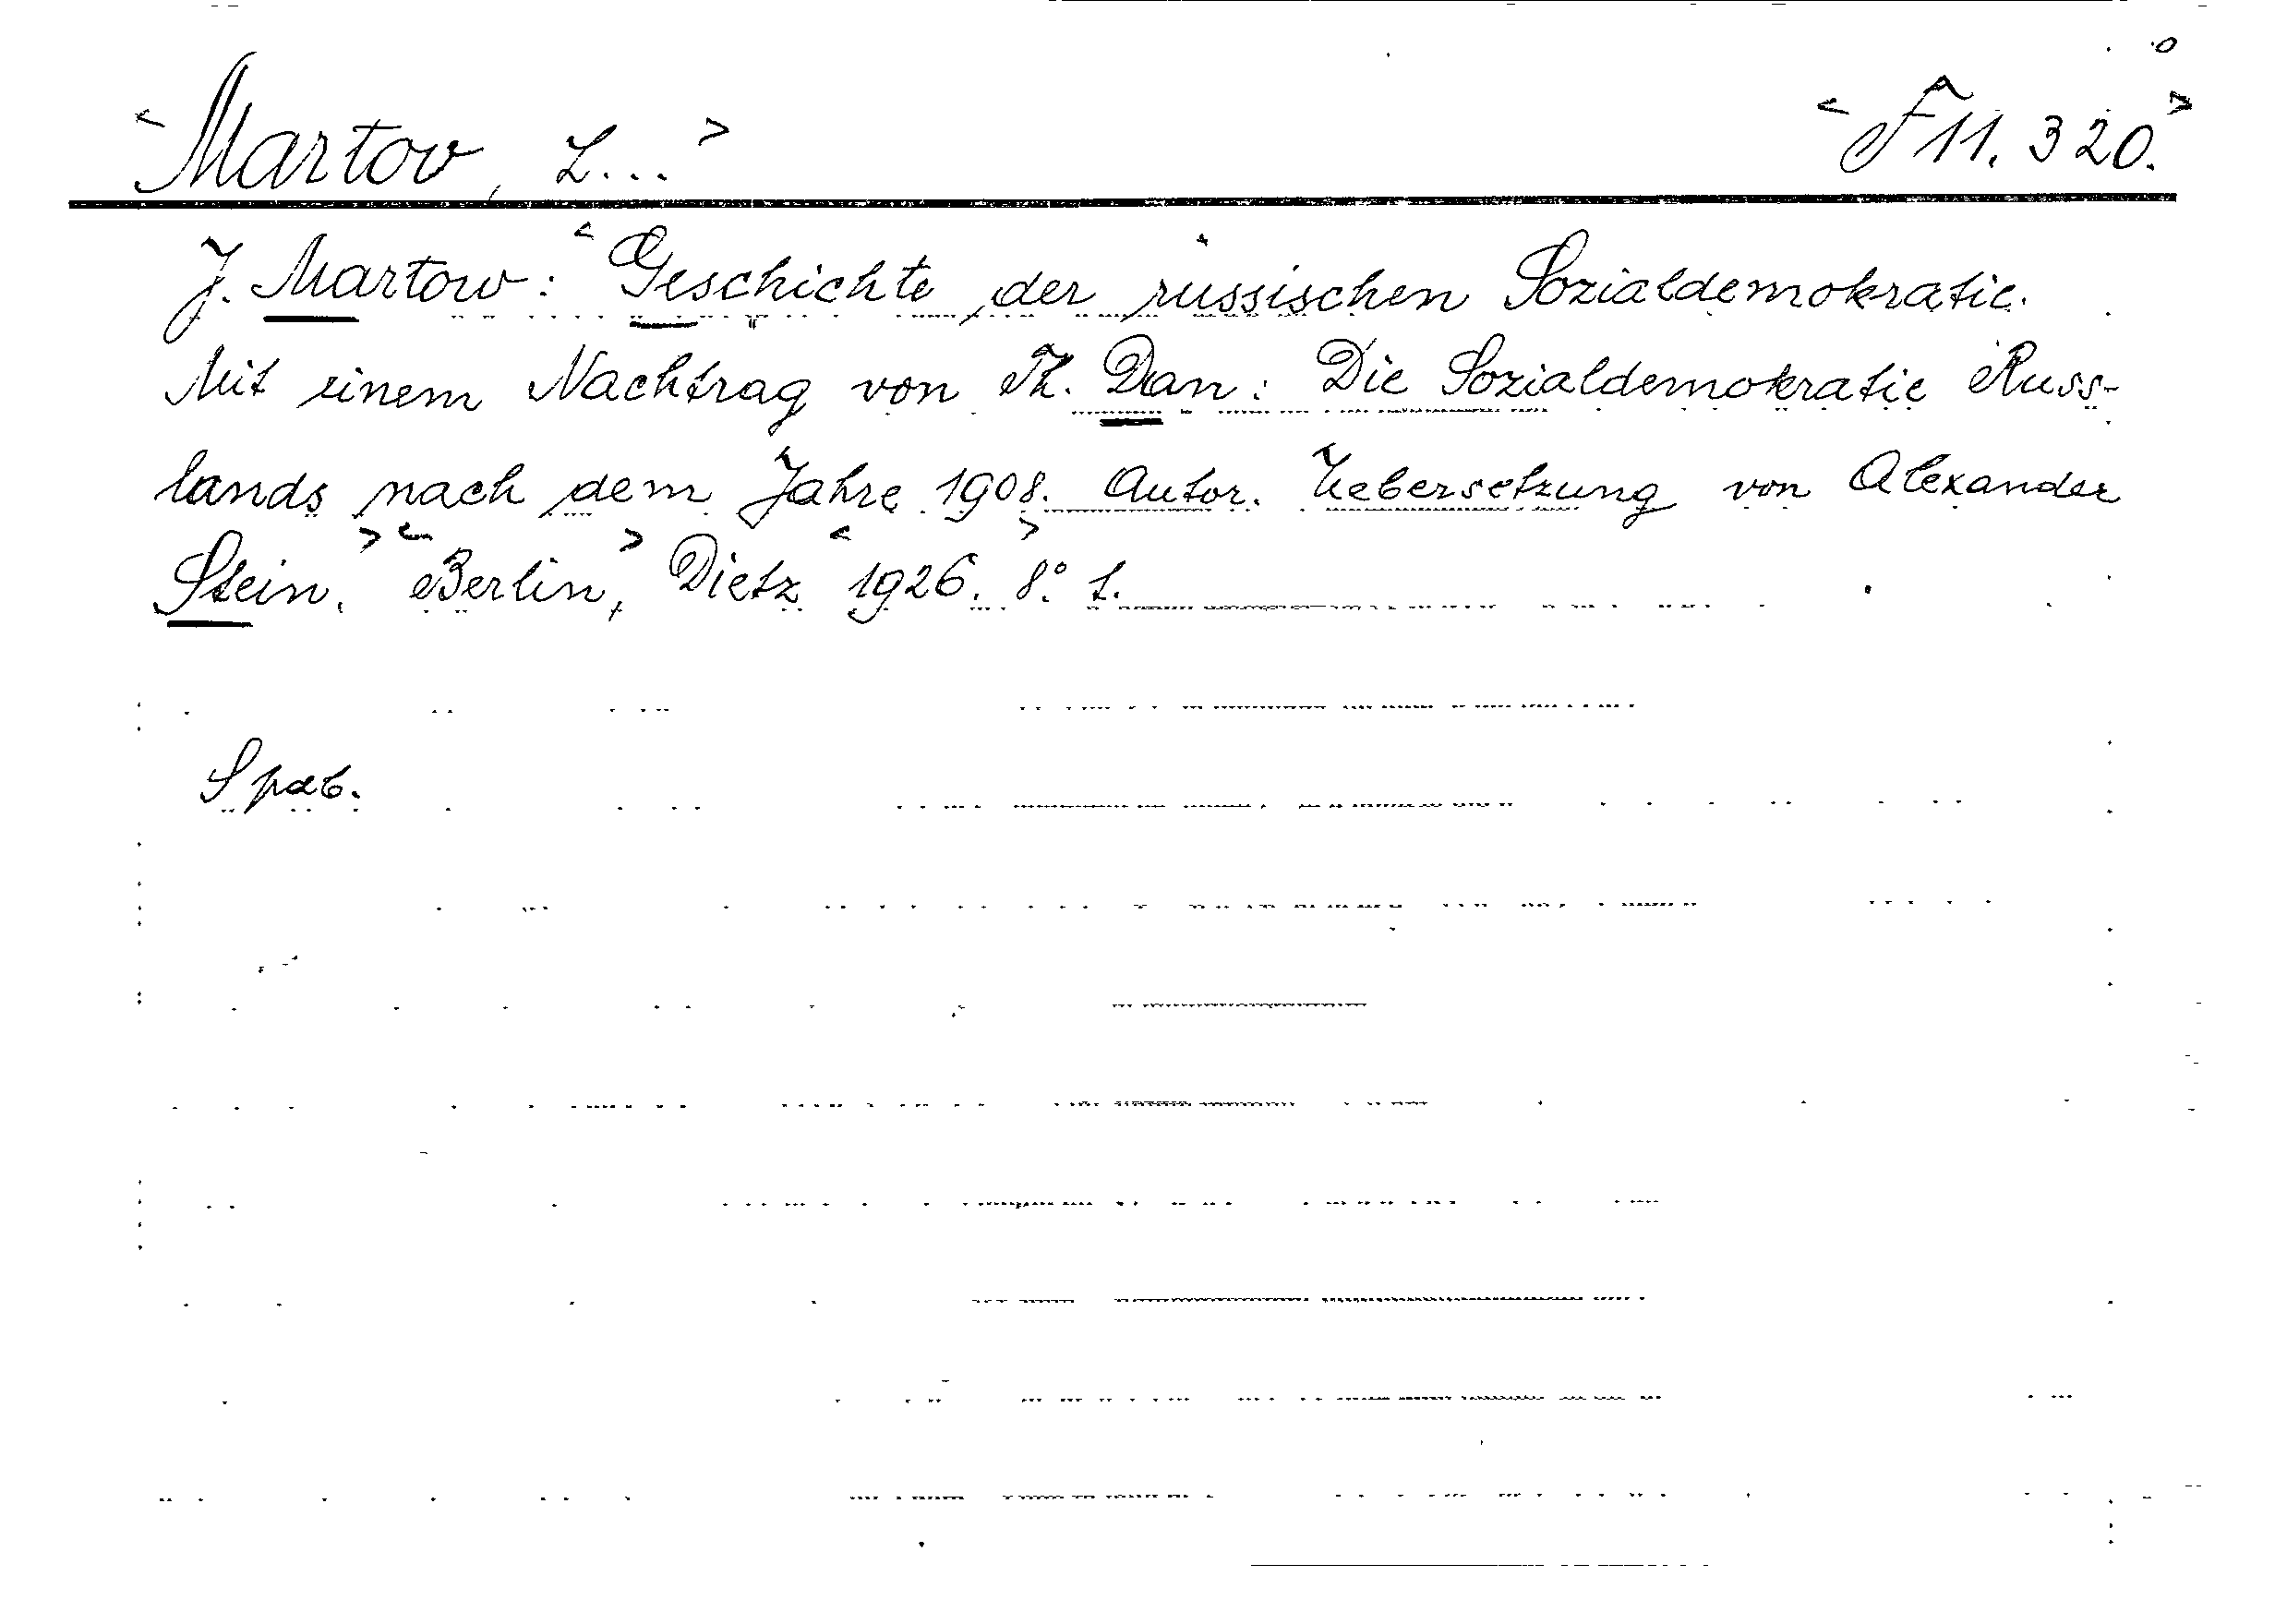 <Martov, L...> <F 11.320.>
J. Martow: <Geschichte der russischen Sozialdemokratie.
Mit einem Nachtrag von Th. Dan: Die Sozialdemokratie Russ-
lands nach dem Jahre 1908. Autor. Uebersetzung von Alexander
Stein.> <Berlin,> Dietz <1926. 8.°> 1.
Spab.